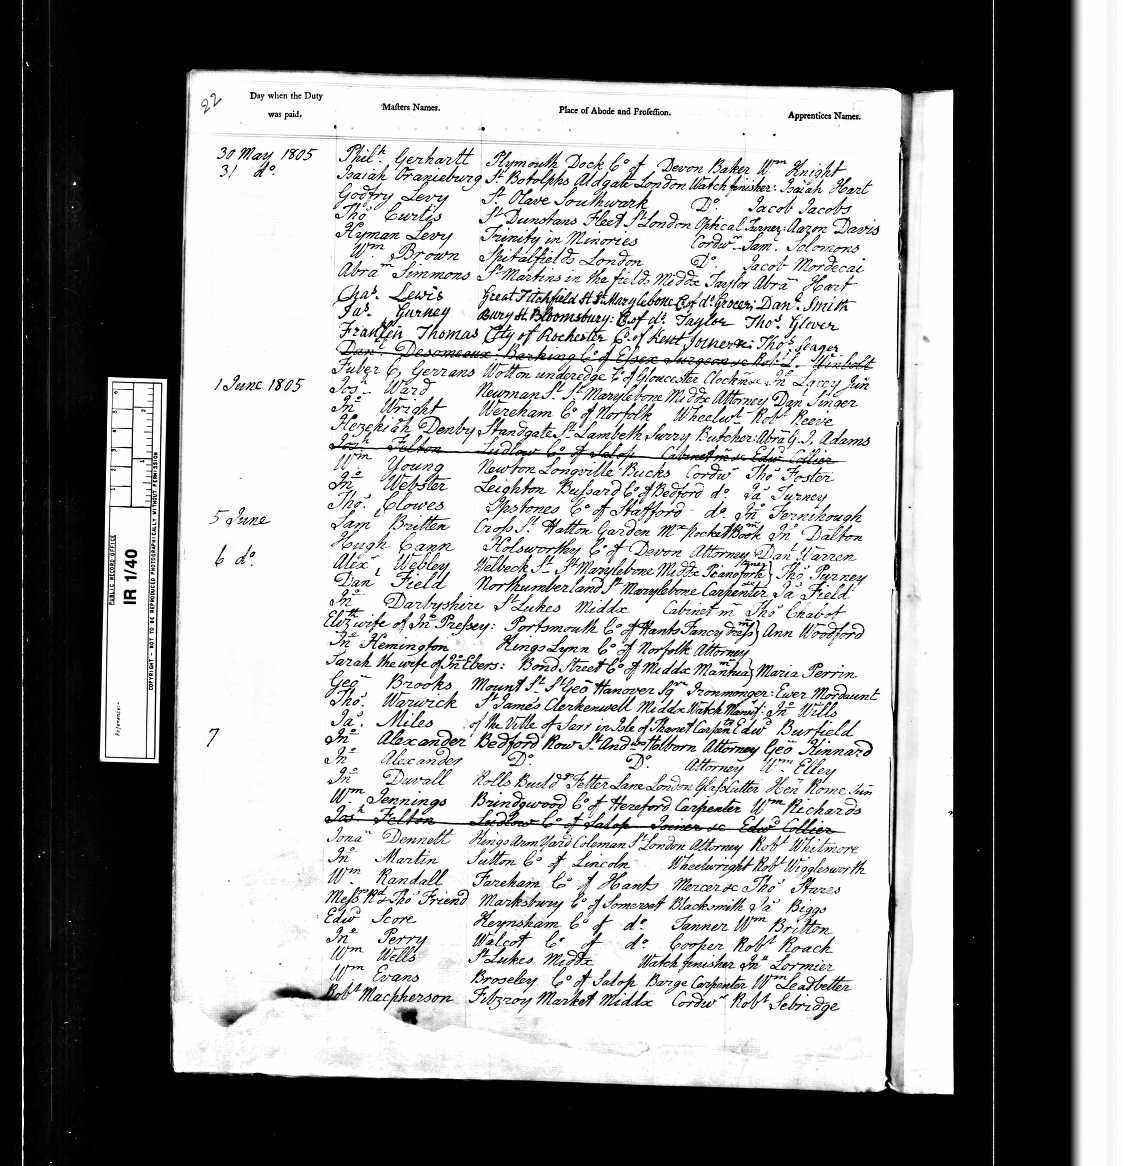 22
Day when the Duty was paid. Masters Names. Place of Abode and Profession. Apprentices Names.
30 May 1805 Philk. Gerhartt Plymouth Dock Co of Devon Baker Wm Knight
31 do. Isaiah Oranieburg St Botolphs Aldgate London Watch finisher: Isaiah Hart
Godfry Levy St Olave Southwark Do. Jacob Jacobs
Thos Curtis St Dunstans Fleet St London Optical Turner: Aaron Davis
Hyman Levy Trinity in Minories Cordwr Saml. Solomons
Wm Brown Spitalfields London Do. Jacob Mordecai
Abram Simmons St Martins in the fields Middx Taylor Abram Hart
Chas. Lewis Great Titchfield St St Marylebone Co of do Grocer: Danl. Smith
Jas. Gurney Bury St Bloomsbury: Co of do Taylor Thos. Glover
Franklin Thomas City of Rochester Co. of Kent Joiner &c: Thos Seager
Danl Desormeaux: Barking Co of Essex Surgeon &c Robt L. Winbolt
Fuber C. Gerrans Wotton underedge Co of Gloucester Clockm &c Jno Lacey Jun
1 June 1805 Josh Ward Newman St St Marylebone Middx Attorney Danl Singer
Jno Wright Wereham Co of Norfolk Wheelwt Robt Reeve
Hezekiah Denby Standgate St Lambeth Surry Butcher: Abra G. J. Adams
Josh Felton Ludlow Co of Salop Cabinet m &c Edwd Collier
Wm Young Newton Longville Bucks Cordwr Thos Foster
Jno Webster Leighton Bussard Co of Bedford do Jas Turney
Thos Clowes Ipstones Co of Stafford do Jno Fernihough
5 June Sam Britten Cross St Hatton Garden Mx Pocket Book m Jno Dalton
Hugh Cann Holsworthy Co of Devon Attorney Danl Warren
6 do. Alexr Webley Welbeck St St Marylebone Middx Pianoforte Thos Purney
Danl Field Northumberland St Marylebone Carpenter &c Jas Field
Jno Darbyshire St Lukes Middx Cabinet m Thos Chabot
Elizth wife of Jno Pressey: Portsmouth Co of Hants Fancy dress m } Ann Woodford
Jno Hemington Kings Lynn Co of Norfolk Attorney
Sarah the wife of Jno Ebers: Bond Street Co of Middx Mantua m } Maria Perrin
Geo Brooks Mount St St Geo Hanover Sqr Ironmonger: Ewer Mordaunt
Thos. Warwick St James Clerkenwell Middx Watch Manuf: Jno Wills
Jas. Miles of the Ville of Sarr in Isle of Thanet Carpenter Edwd Burfield
7 Jno Alexander Bedford Row St Andws Holborn Attorney Geo Kinnard
Jno Alexander Do. Do. Attorney Wm Elley
Jno Duvall Rolls Buildgs Fetter Lane London Glass Cutter Heny Rome Jun
Wm Jennings Brindgwood Co of Hereford Carpenter Wm Richards
Josh Felton Ludlow Co of Salop Joiner &c Edwd Collier
Jonan Dennett Kings Arm Yard Coleman St London Attorney Robt Whitmore
Jno Martin Sutton Co of Lincoln Wheelwright Robt Wigglesworth
Wm Randall Fareham Co of Hants Mercer &c Thos Stares
Messrs Rd & Thos Friend Marksbury Co of Somerset Blacksmith Jas Biggs
Edwd Score Keynsham Co of do. Tanner Wm Britton
Jno Perry Walcot Co of do. Cooper Robt Roach
Wm Wells St Lukes Middx Watch finisher Jno Lormier
Wm Evans Broseley Co of Salop Barge Carpenter Wm Leadbetter
Robt Macpherson Fitzroy Market Middx Cordwr Robt Sebridge
PUBLIC RECORD OFFICE
IR 1/40
Reference:-
COPYRIGHT - NOT TO BE REPRODUCED PHOTOGRAPHICALLY WITHOUT PERMISSION